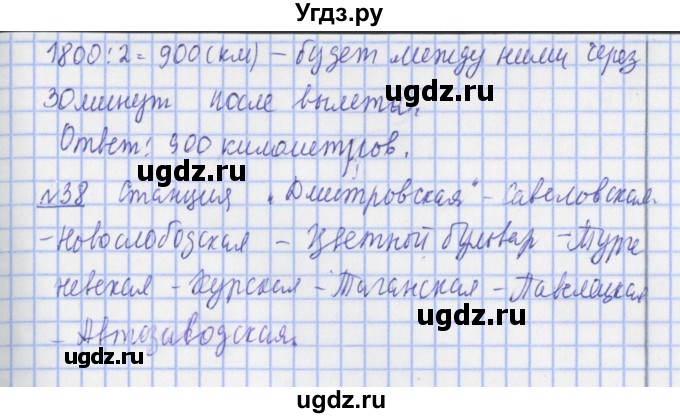 Угдз.ру
1800:2=900(км) - будет между ними через
30 минут после вылета.
Ответ: 900 километров.
№38 Станция "Дмитровская" - Савеловская
- Новослободская - Цветный бульвар - Турге
невская - Курская - Таганская - Павелецкая
- Автозаводская.
ugdz.ru
ugdz.ru
ugdz.ru
ugdz.ru
ugdz.ru
ugdz.ru
ugdz.ru
ugdz.ru